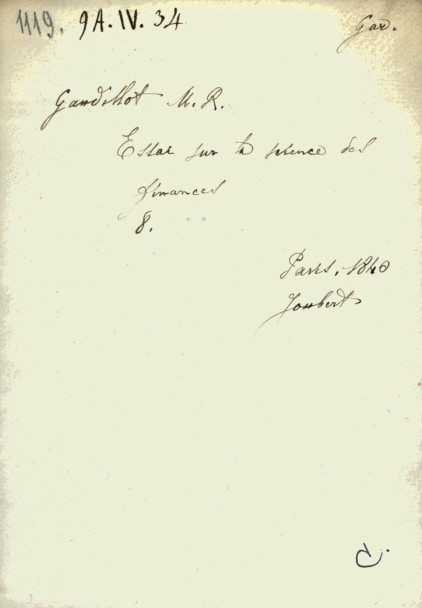 1119. 9A.IV.34
Gar.
Gandillot M. R.
Essai sur la science des
finances
8.
Paris, 1840
Joubert
C.